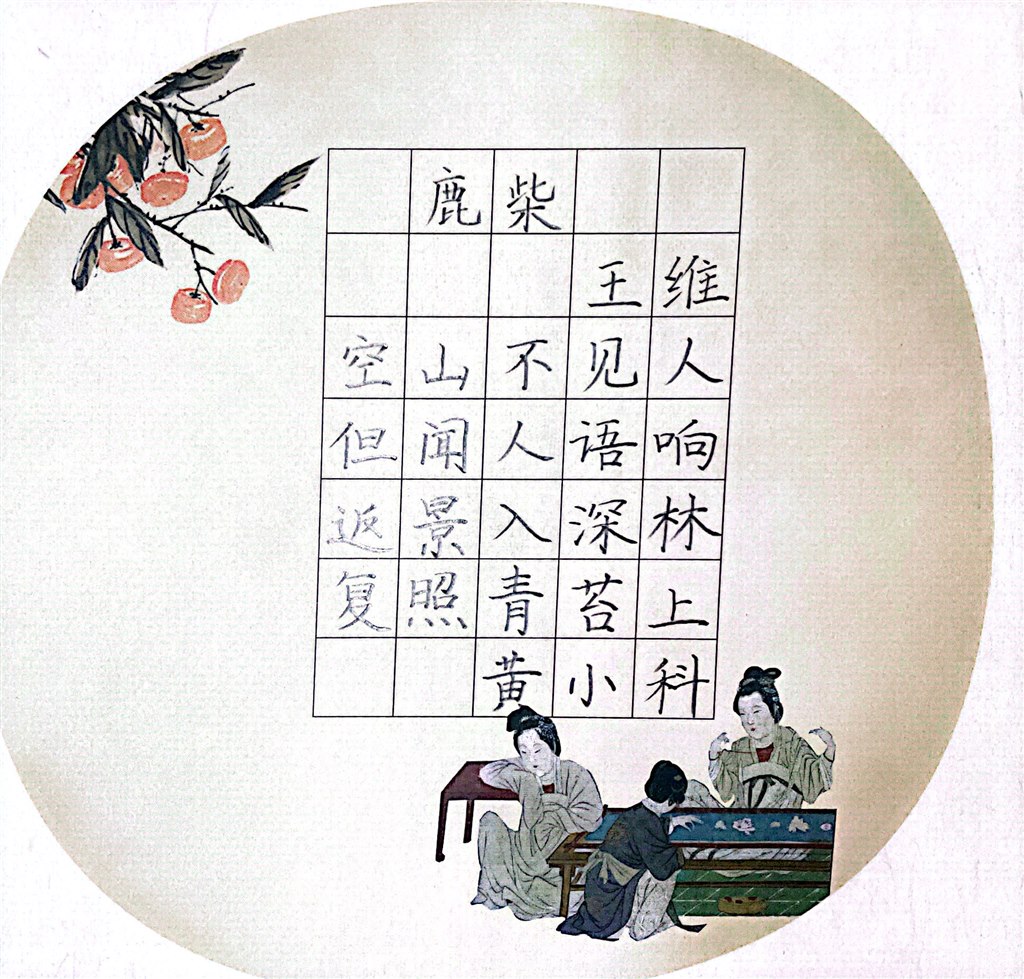 鹿柴
王维
空山不见人
但闻人语响
返景入深林
复照青苔上
黄小科